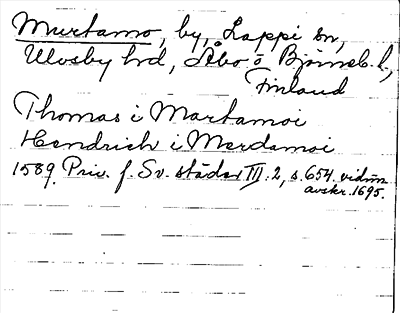 Murtamo, by, Lappi sn,
Ulvsby hd, Åbo o Björneb. l.,
Finland
Thomas i Martamoi
Hendrich i Merdamoi
1589. Priv. f. Sv. städer III:2, s. 654. vidim.
avskr. 1695.